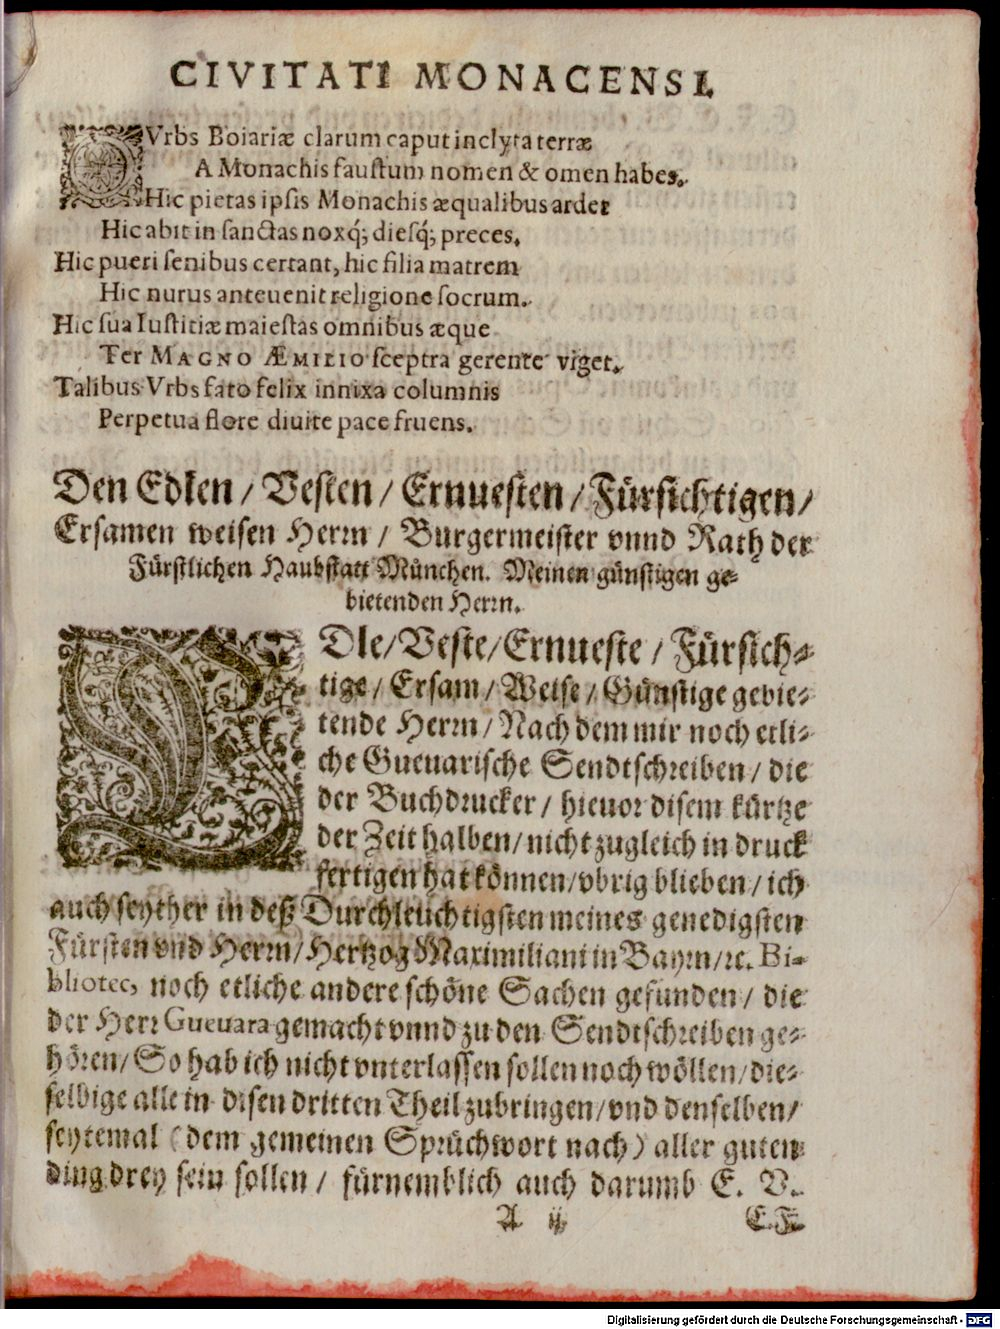 CIVITATI MONACENSI.
OVrbs Boiariæ clarum caput inclyta terræ
A Monachis faustum nomen & omen habes.
Hic pietas ipsis Monachis æqualibus ardet
Hic abit in sanctas noxq́; diesq́; preces.
Hic pueri senibus certant, hic filia matrem
Hic nurus anteuenit religione socrum.
Hic sua Iustitiæ maiestas omnibus æque
Ter MAGNO ÆMILIO sceptra gerente viget.
Talibus Vrbs fato felix innixa columnis
Perpetua flore diuite pace fruens.
Den Edlen / Vesten / Ernuesten / Fürsichtigen /
Ersamen weisen Herrn / Burgermeister vnnd Rath der
Fürstlichen Haubstatt München. Meinen günstigen ge-
bietenden Herrn.
EDle / Veste / Ernueste / Fürsich-
tige / Ersam / Weise / Günstige gebie-
tende Herrn / Nach dem mir noch etli-
che Gueuarische Sendtschreiben / die
der Buchdrucker / hieuor disem kürtze
der Zeit halben / nicht zugleich in druck
fertigen hat können / vbrig blieben / ich
auch seyther in deß Durchleuchtigsten meines genedigsten
Fürsten vnd Herrn / Hertzog Maximiliani in Bayrn / ꝛc. Bi-
bliotec, noch etliche andere schöne Sachen gefunden / die
der Herr Gueuara gemacht vnnd zu den Sendtschreiben ge-
hören / So hab ich nicht vnterlassen sollen noch wöllen / die-
selbige alle in disen dritten Theil zubringen / vnd denselben /
seytemal (dem gemeinen Sprüchwort nach) aller guten
ding drey sein sollen / fürnemblich auch darumb E. V.
A ij E. F.
Digitalisierung gefördert durch die Deutsche Forschungsgemeinschaft - DFG